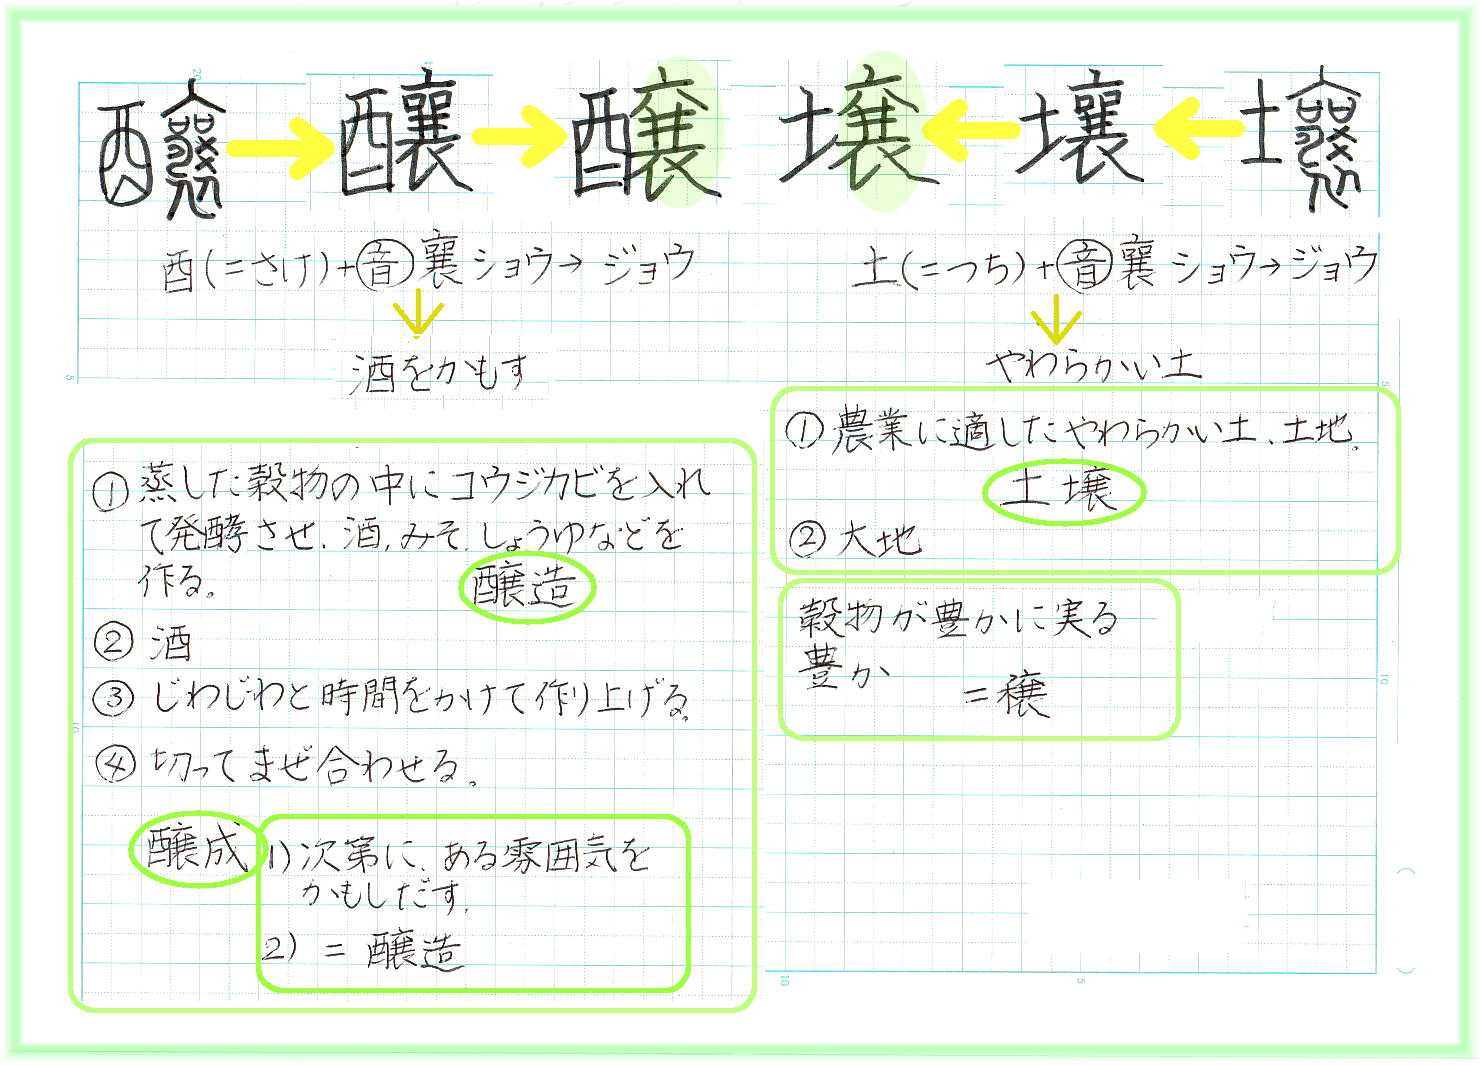 釀 → 釀 → 醸
壌 ← 壤 ← 壤
酉(=さけ)+音襄ショウ→ジョウ
酒をかもす
①蒸した穀物の中にコウジカビを入れ
て発酵させ、酒,みそ,しょうゆなどを
作る。
醸造
②酒
③じわじわと時間をかけて作り上げる。
④切ってまぜ合わせる。
醸成
1)次第に、ある雰囲気を
かもしだす。
2) = 醸造
土(=つち)+音襄ショウ→ジョウ
やわらかい土
①農業に適したやわらかい土、土地。
土壌
②大地
穀物が豊かに実る
豊か
=穣